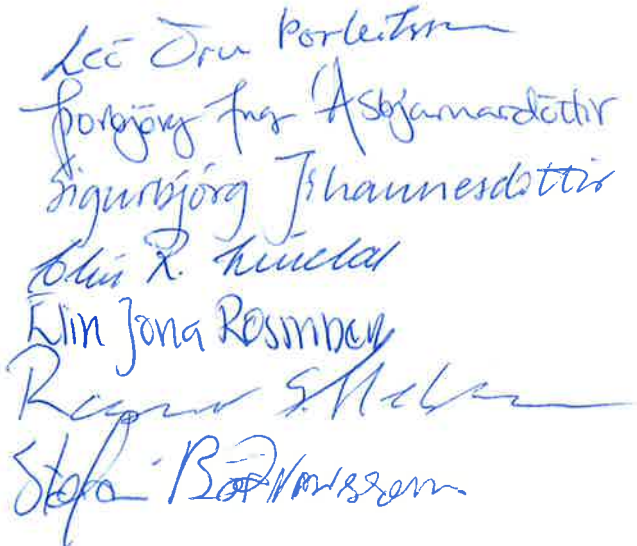 Leó Örn Þorleifsson
Þorbjörg Inga Ásbjarnardóttir
Sigurbjörg Jóhannesdóttir
Elín R. Líndal
Elín Jóna Rosinberg
Stefán Böðvarsson